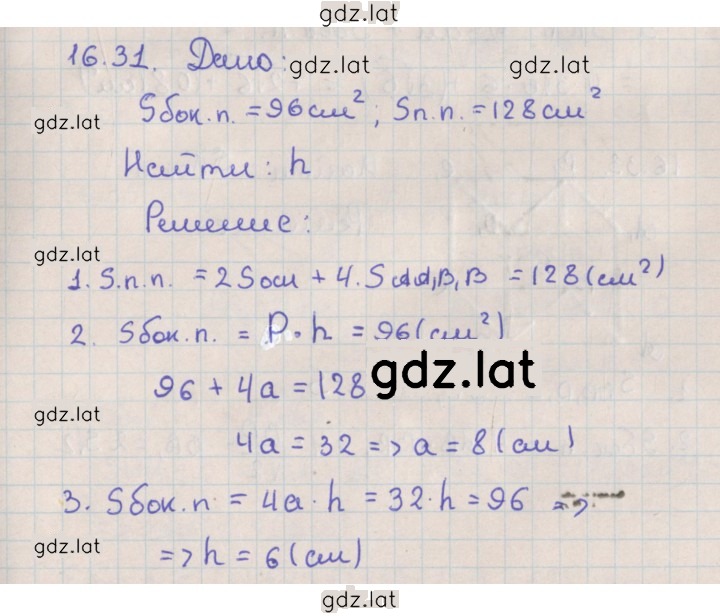 gdz.lat
16.31. Дано:
gdz.lat gdz.lat
Sбок.п. = 96 см²; Sп.п. = 128 см²
gdz.lat
Найти: h
Решение:
gdz.lat
1. S.п.п. = 2Sосн + 4.SAA₁B₁B = 128(см²)
2. Sбок.п. = P·h = 96(см²)
96 + 4a = 128
gdz.lat
gdz.lat
4a = 32 => a = 8(см)
3. Sбок.п = 4a·h = 32·h = 96 =>
gdz.lat
=> h = 6(см)
gdz.lat